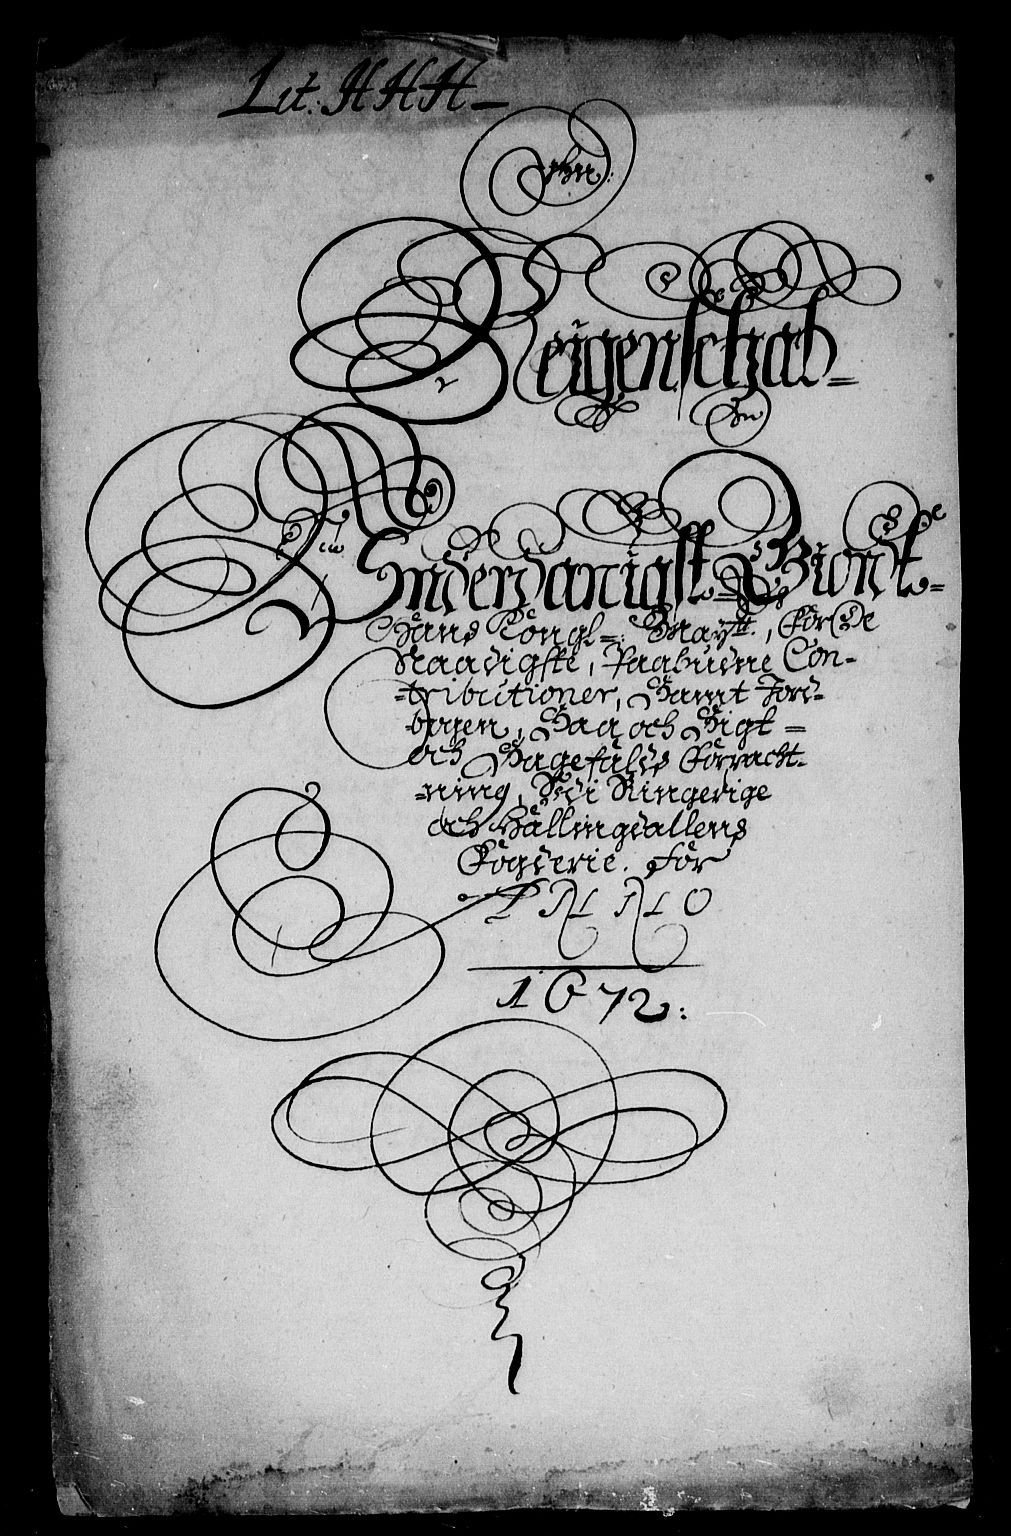 Lit: HHH
Reigenschab=
Underdanigst Giordt=
Hans Kongl=: Maytt., For De
Naadigste, Paabudne Con-
=tributioner, Samt Jord-
bogen, Saa och Sigt=
och Sagefalds Forracht-
=ning, Udi Ringerige
och Hallingdallens
Fogderie. For
ANNO
1672: